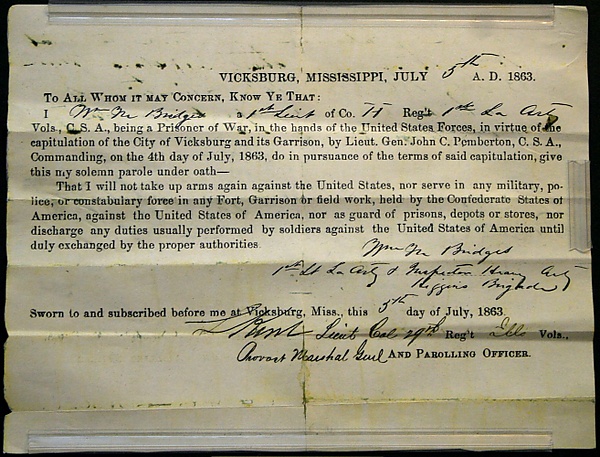 VICKSBURG, MISSISSIPPI, JULY 5th A. D. 1863.
TO ALL WHOM IT MAY CONCERN, KNOW YE THAT:
I Wm M Bridges a 1st Lieut of Co. H Reg't 1st La Arty
Vols., C. S. A., being a Prisoner of War, in the hands of the United States Forces, in virtue of the
capitulation of the City of Vicksburg and its Garrison, by Lieut. Gen. John C. Pemberton, C. S. A.,
Commanding, on the 4th day of July, 1863, do in pursuance of the terms of said capitulation, give
this my solemn parole under oath—
That I will not take up arms again against the United States, nor serve in any military, po-
lice, or constabulary force in any Fort, Garrison or field work, held by the Confederate States of
America, against the United States of America, nor as guard of prisons, depots or stores, nor
discharge any duties usually performed by soldiers against the United States of America until
duly exchanged by the proper authorities.
Wm M Bridges
1st Lt La Arty & Inspector Heavy Arty
Higgins Brigade
Sworn to and subscribed before me at Vicksburg, Miss., this 5th day of July, 1863.
Lieut Col 29th Reg't Ills Vols.,
Provost Marshal Genl AND PAROLLING OFFICER.